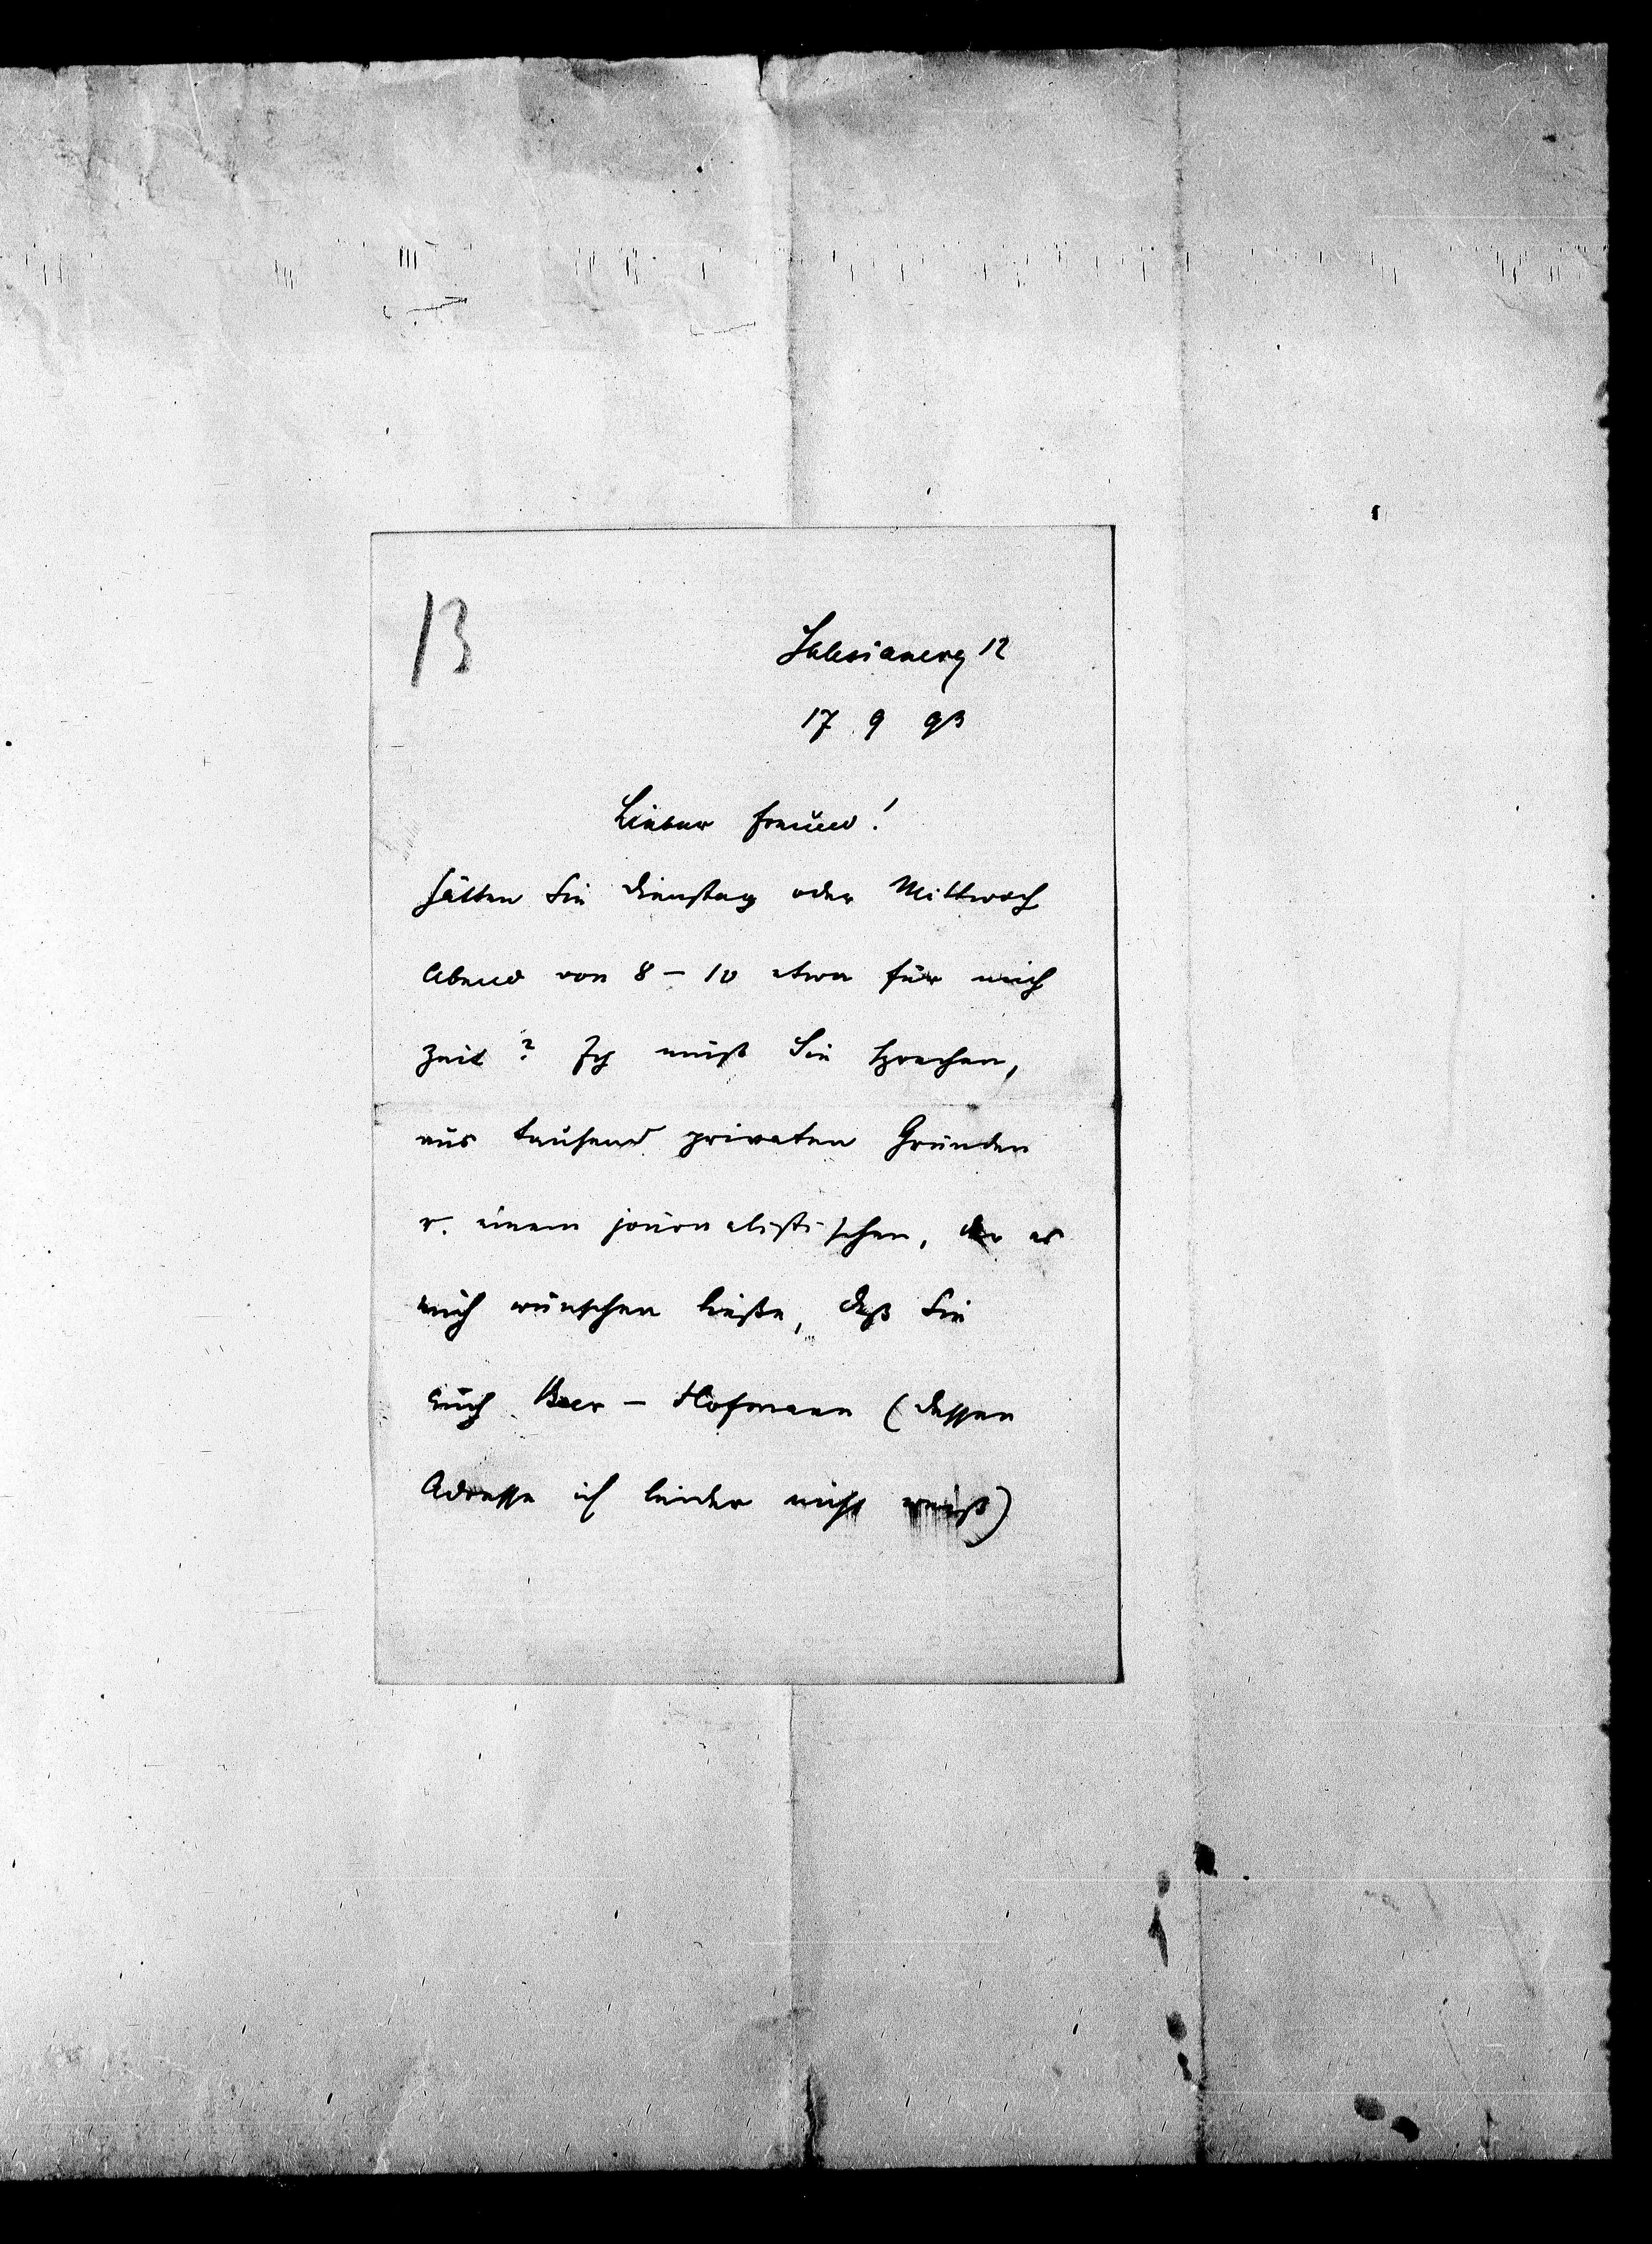 13
Salesianerg 12
17 9 93
Lieber Freund!
hätten Sie Dienstag oder Mittwoch
Abend von 8 – 10 etwa für mich
Zeit? Ich muß Sie sprechen,
aus tausend privaten Gründen
u. einem journalistischen, der es
mich wünschen ließe, daß Sie
auch Beer-Hofmann (dessen
Adresse ich leider nicht weiß)